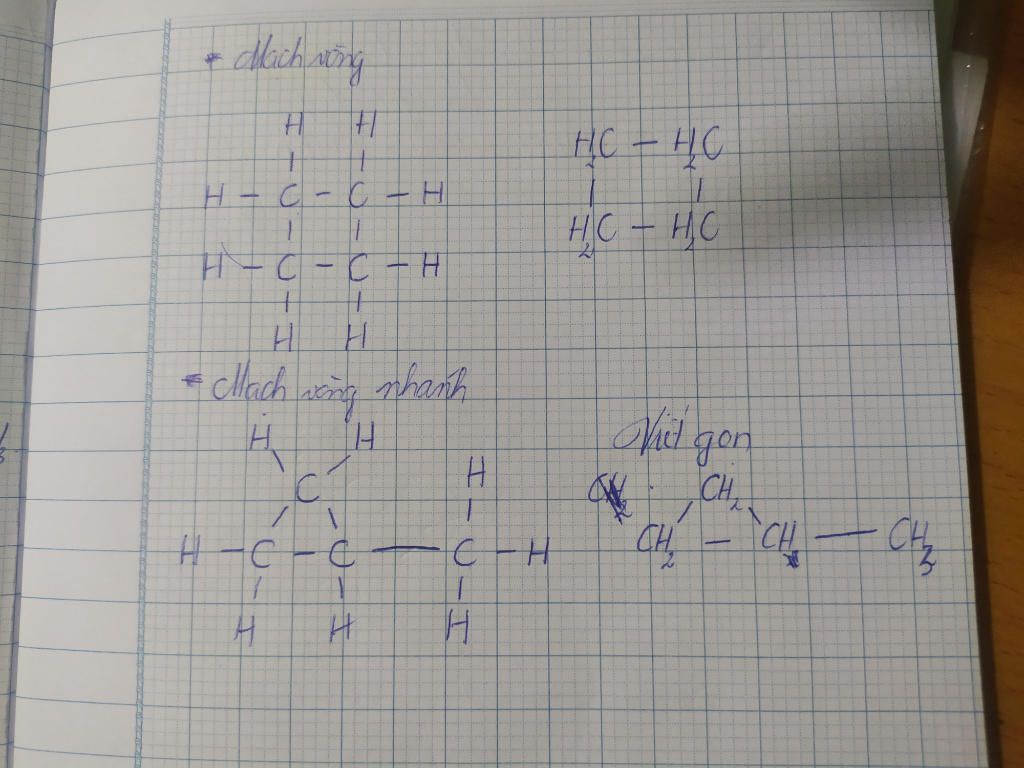 * Mạch vòng
H H
H - C - C - H
H - C - C - H
H H
H₂C - H₂C
H₂C - H₂C
* Mạch vòng nhánh
H H
C
H
H - C - C - C - H
H H H
Viết gọn
CH₂
CH₂ - CH - CH₃